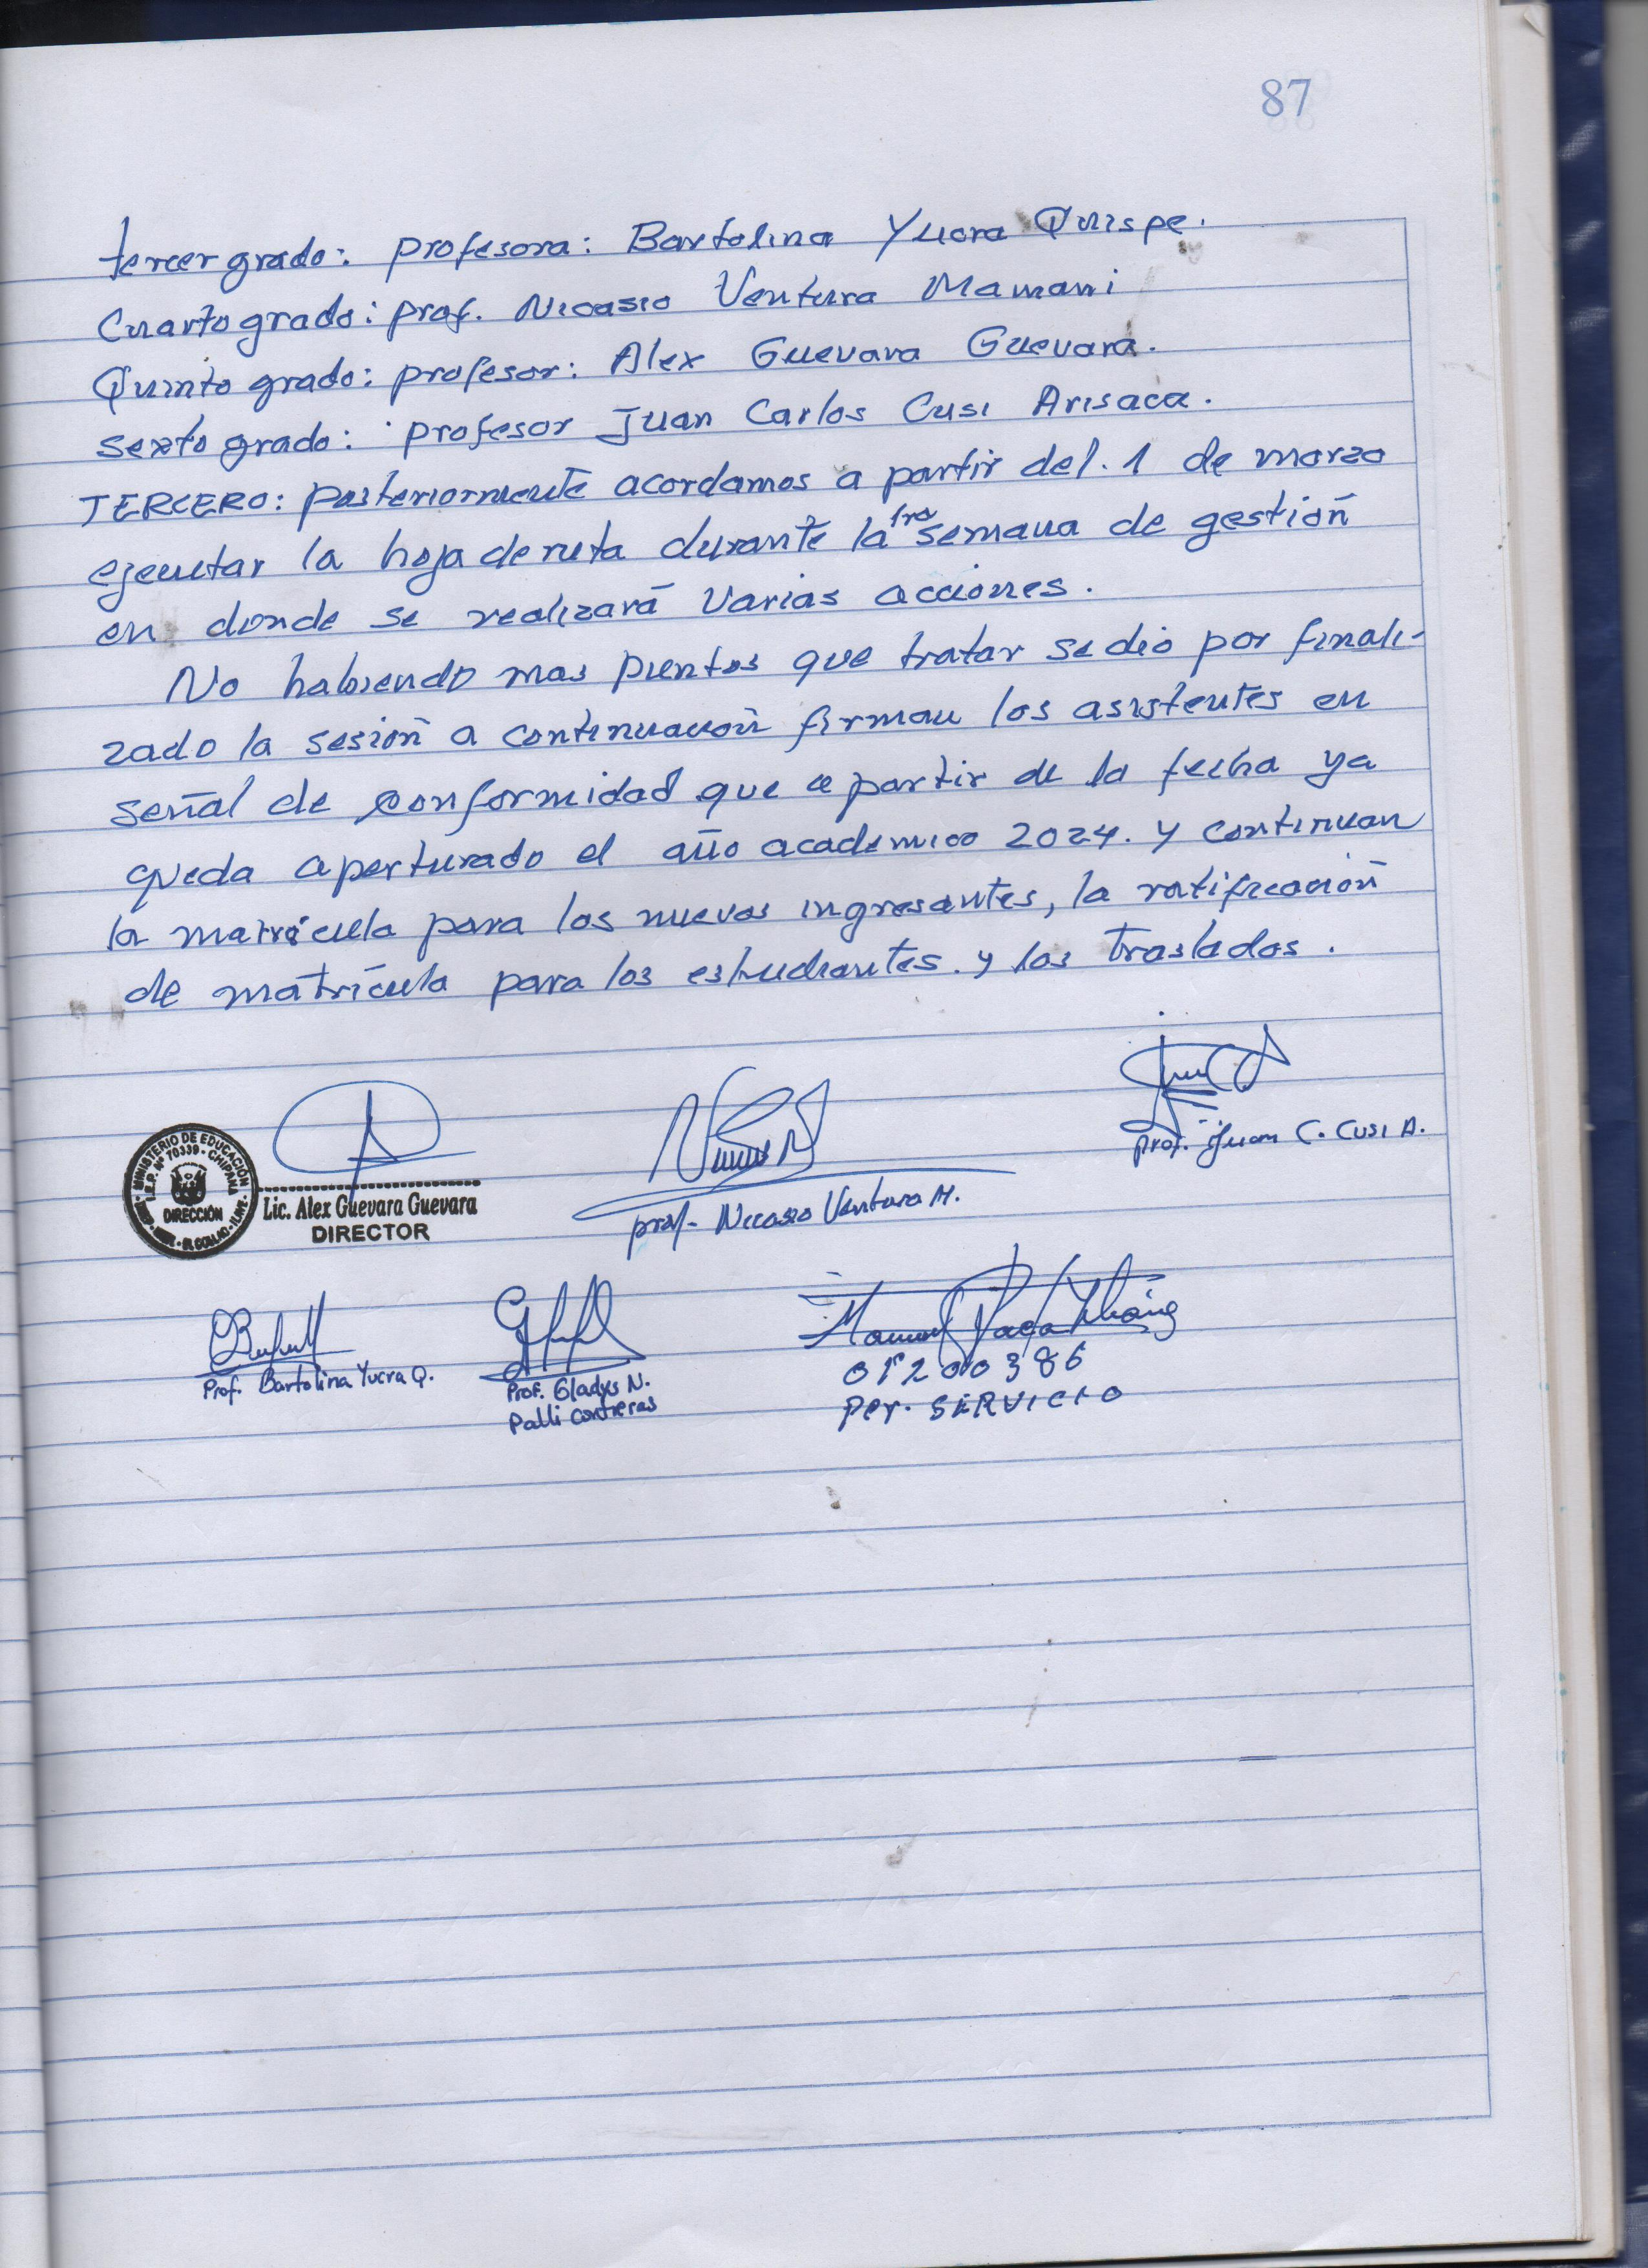 87
tercer grado: profesora: Bartolina Yucra Quispe.
Cuarto grado: prof. Nicasio Ventura Mamani
Quinto grado: profesor: Alex Guevara Guevara.
sexto grado: profesor Juan Carlos Cusi Arisaca.
TERCERO: posteriormente acordamos a partir del. 1 de marzo
ejecutar la hoja de ruta durante la 1ra semana de gestión
en donde se realizará varias acciones.
No habiendo mas puntos que tratar se dio por finali-
zado la sesión a continuación firman los asistentes en
señal de conformidad que a partir de la fecha ya
queda aperturado el año academico 2024. y continuan
la matrícula para los nuevos ingresantes, la ratificación
de matrícula para los estudiantes. y los traslados.
prof. Juan C. Cusi A.
MINISTERIO DE EDUCACIÓN
I.E.P. N° 70339 - CHIPANA
DIRECCIÓN
Lic. Alex Guevara Guevara
DIRECTOR
prof. Nicasio Ventura M.
Prof. Bartolina Yucra Q.
Prof. Gladys N.
Palli Contreras
01200386
Per. SERVICIO